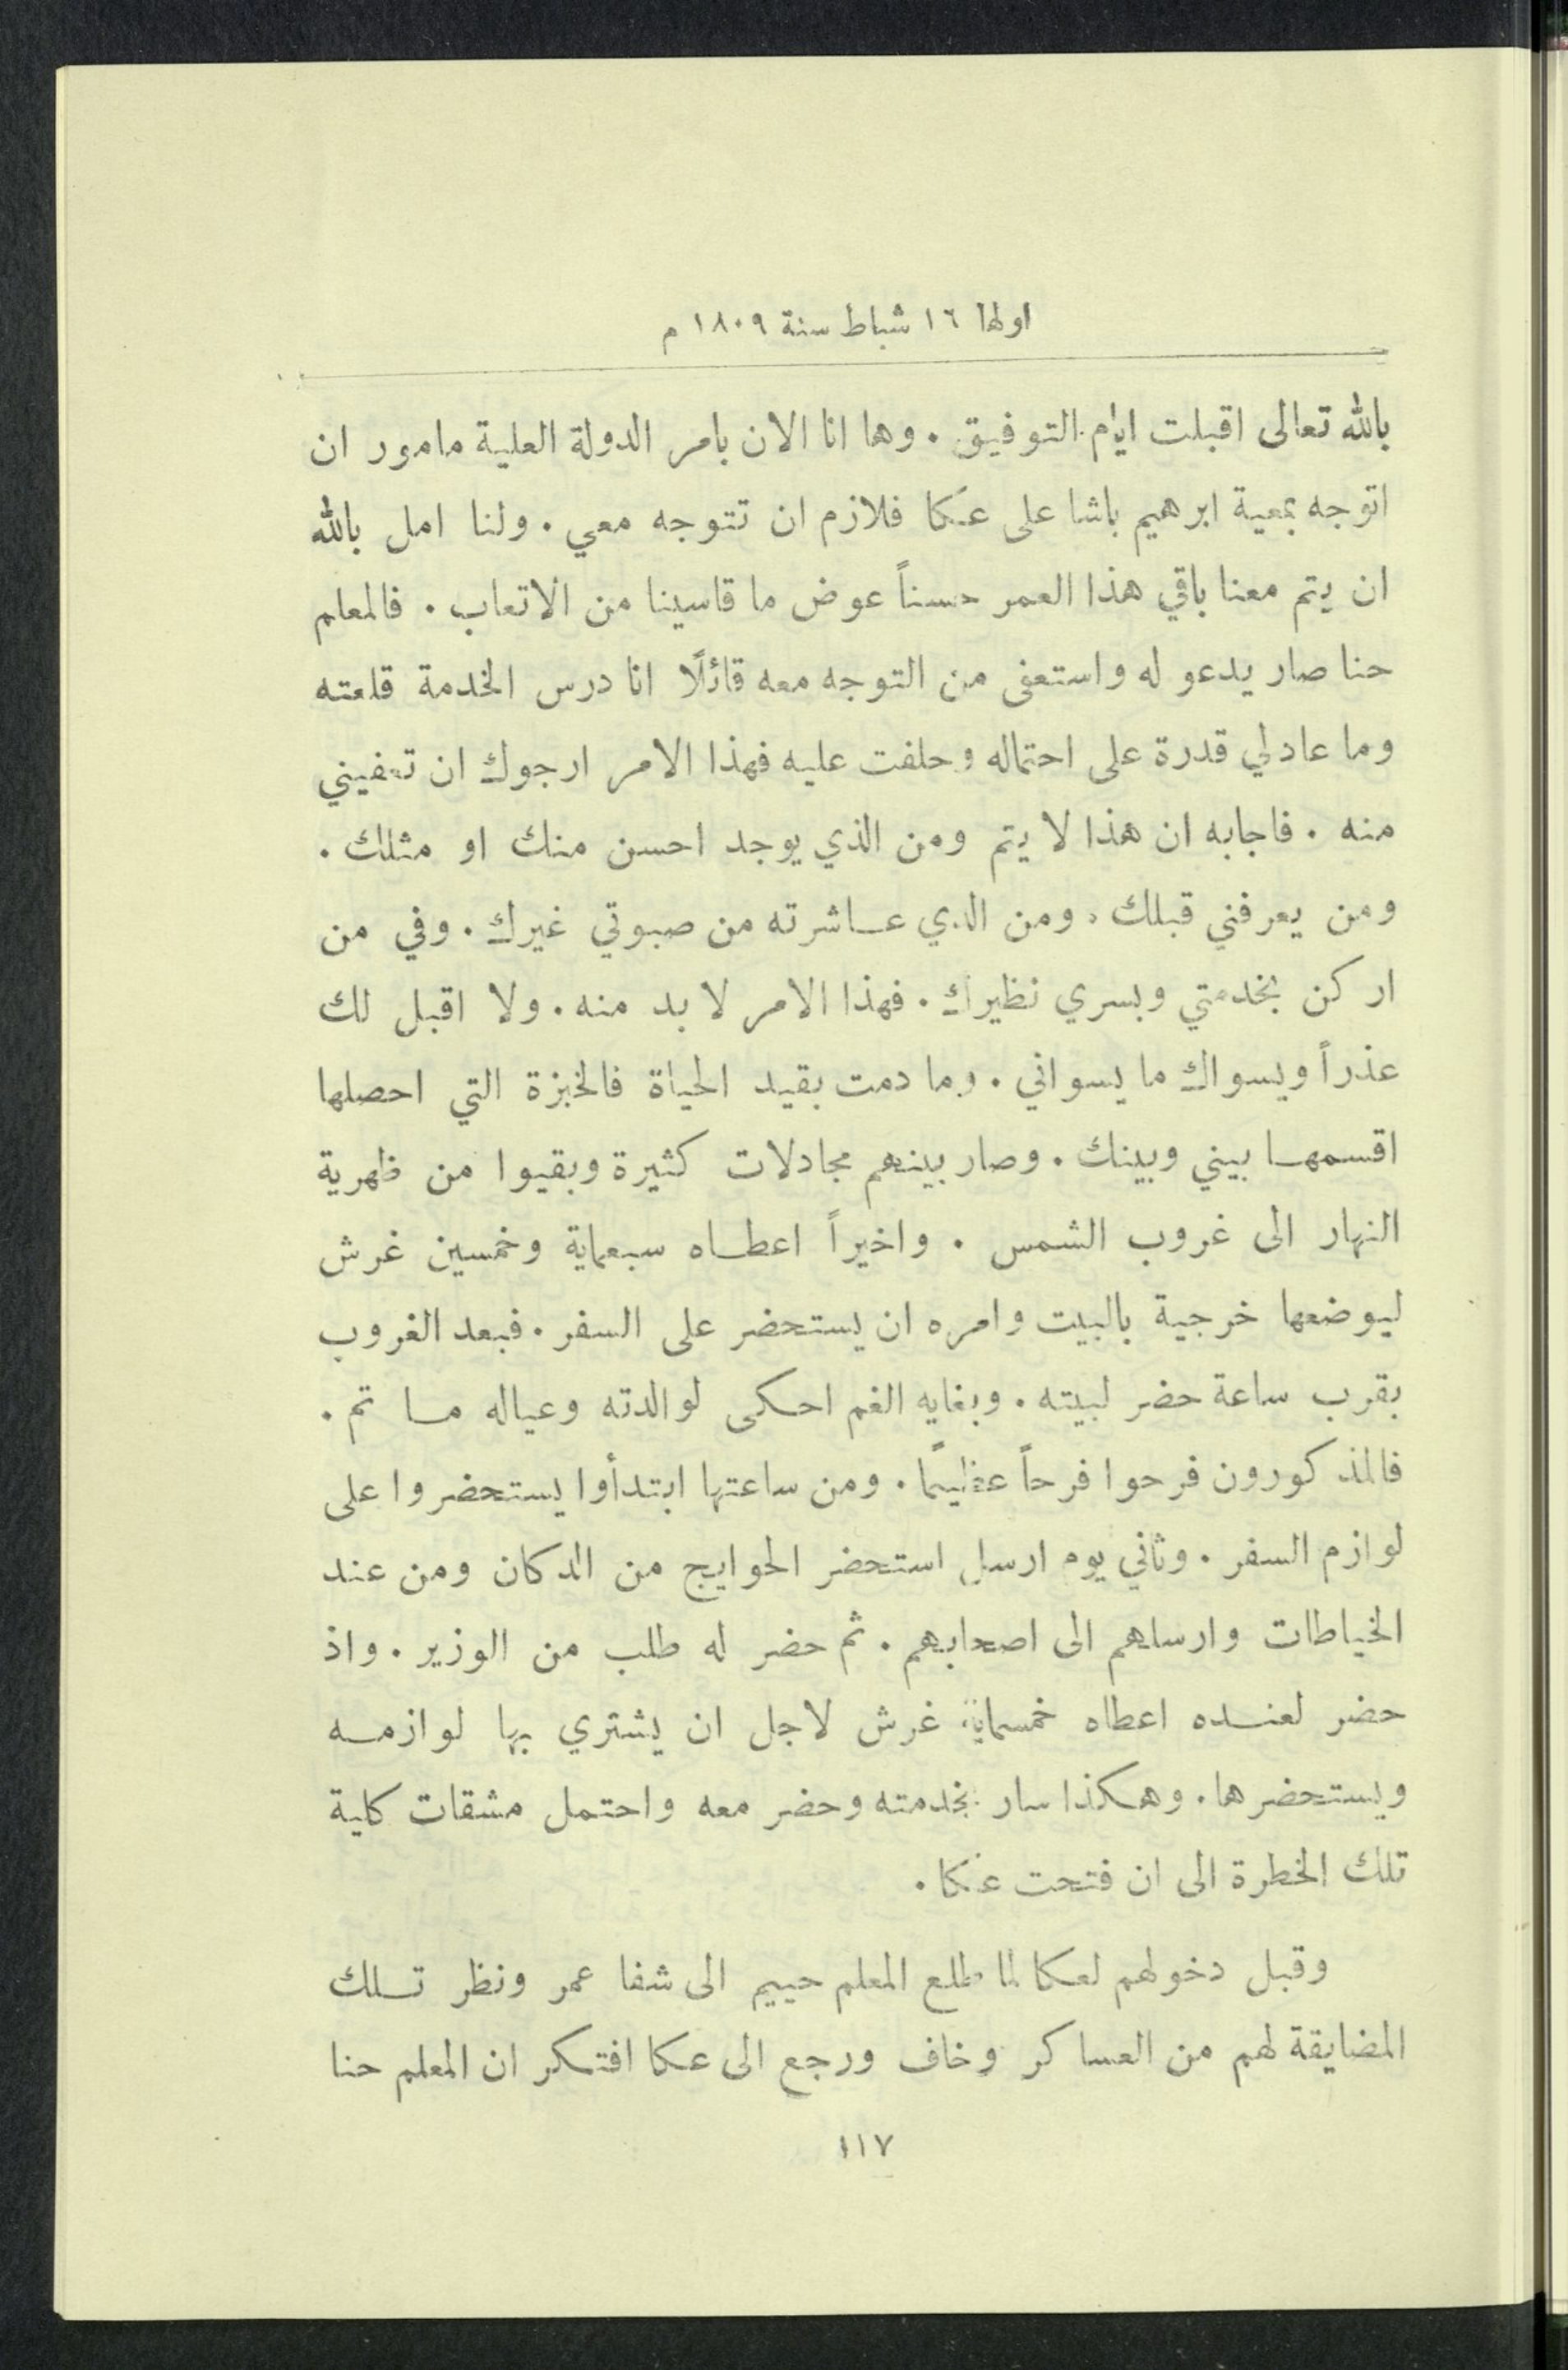 اولها ١٦ شباط سنة ١٨٠٩ م
بالله تعالى اقبلت ايام التوفيق . وها انا الان بامر الدولة العلية مامور ان
اتوجه بمعية ابرهيم باشا على عكا فلازم ان تتوجه معي . ولنا امل بالله
ان يتم معنا باقي هذا العمر حسناً عوض ما قاسينا من الاتعاب . فالمعلم
حنا صار يدعو له واستعفى من التوجه معه قائلًا انا درس الخدمة قلعته
وما عاد لي قدرة على احتماله وحلفت عليه فهذا الامر ارجوك ان تعفيني
منه . فاجابه ان هذا لا يتم ومن الذي يوجد احسن منك او مثلك .
ومن يعرفني قبلك . ومن الذي عاشرته من صبوتي غيرك . وفي من
اركن بخدمتي وبسري نظيرك . فهذا الامر لا بد منه . ولا اقبل لك
عذراً ويسواك ما يسواني . وما دمت بقيد الحياة فالخبزة التي احصلها
اقسمها بيني وبينك . وصار بينهم مجادلات كثيرة وبقيوا من ظهرية
النهار الى غروب الشمس . واخيراً اعطاه سبعماية وخمسين غرش
ليوضعها خرجية بالبيت وامره ان يستحضر على السفر . فبعد الغروب
بقرب ساعة حضر لبيته . وبغايه الغم احكى لوالدته وعياله ما تم .
فالمذكورون فرحوا فرحاً عظيمًا . ومن ساعتها ابتدأوا يستحضروا على
لوازم السفر . وثاني يوم ارسل استحضر الحوايج من الدكان ومن عند
الخياطات وارسلهم الى اصحابهم . ثم حضر له طلب من الوزير . واذ
حضر لعنده اعطاه خمسماية غرش لاجل ان يشتري بها لوازمه
ويستحضرها . وهكذا سار بخدمته وحضر معه واحتمل مشقات كلية
تلك الخطرة الى ان فتحت عكا .
وقبل دخولهم لعكا لما طلع المعلم حييم الى شفا عمر ونظر تلك
المضايقة لهم من العساكر وخاف ورجع الى عكا افتكر ان المعلم حنا
١١٧